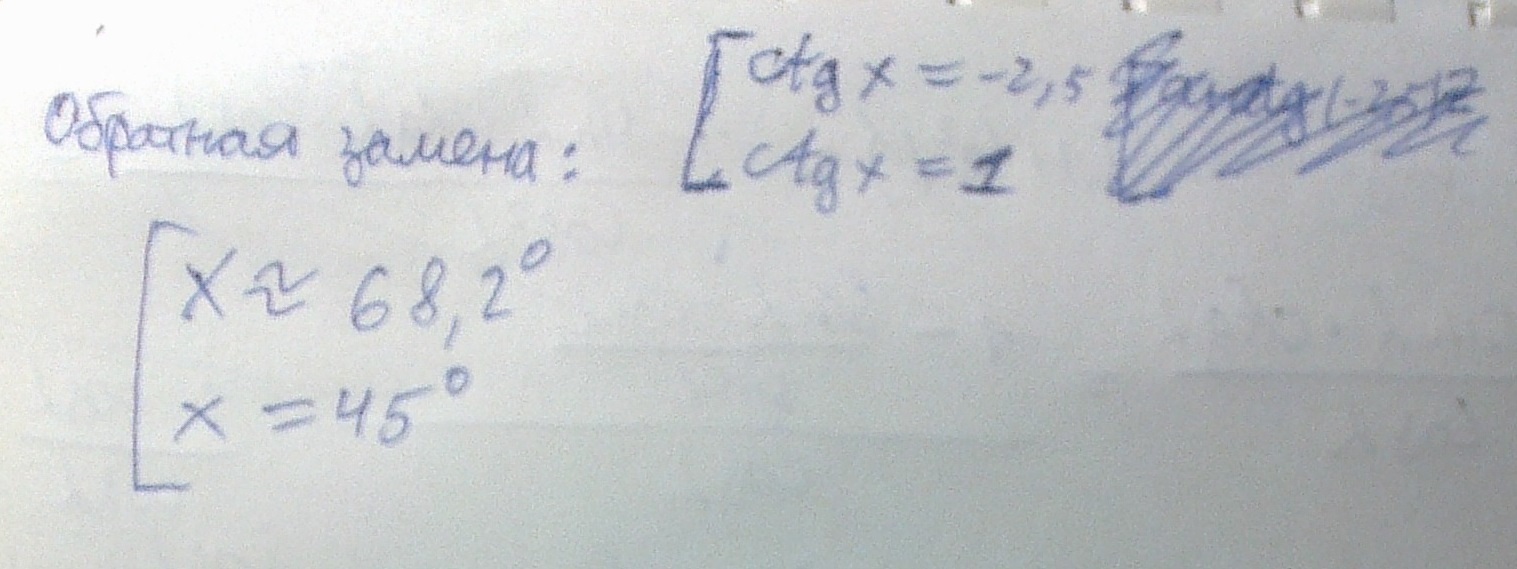 Обратная замена: ctg x = -2,5
ctg x = 1
x ≈ 68,2°
x = 45°